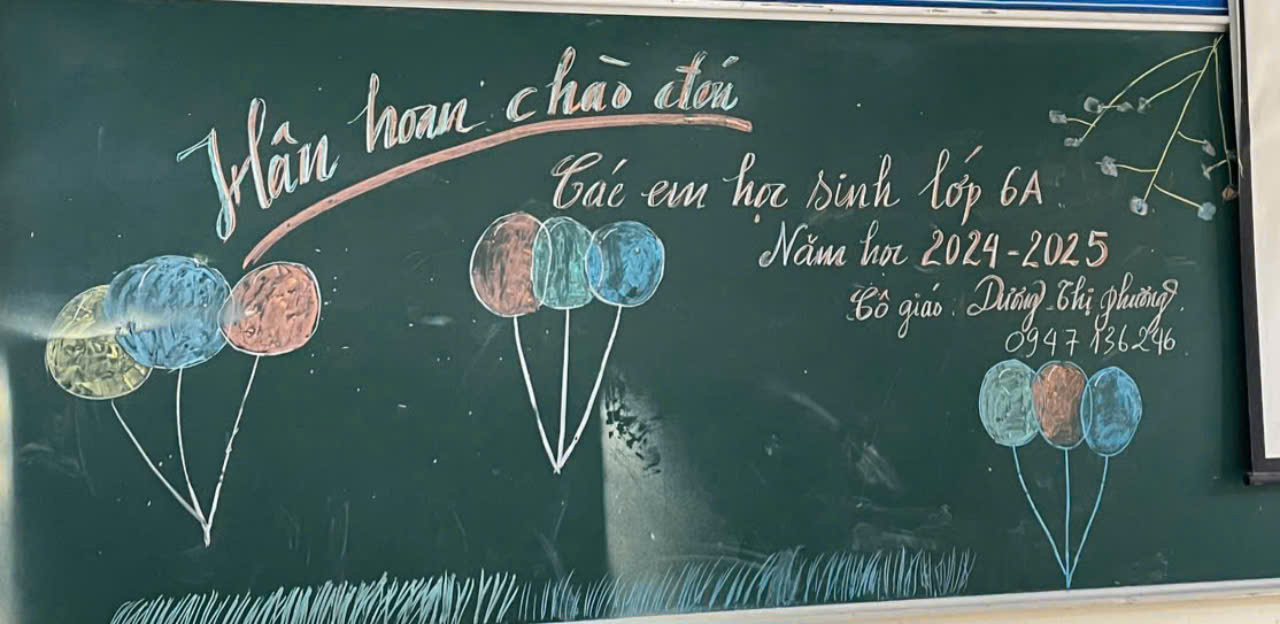 Hân hoan chào đón
Các em học sinh lớp 6A
Năm học 2024-2025
Cô giáo: Dương Thị Phương
0947 136 246